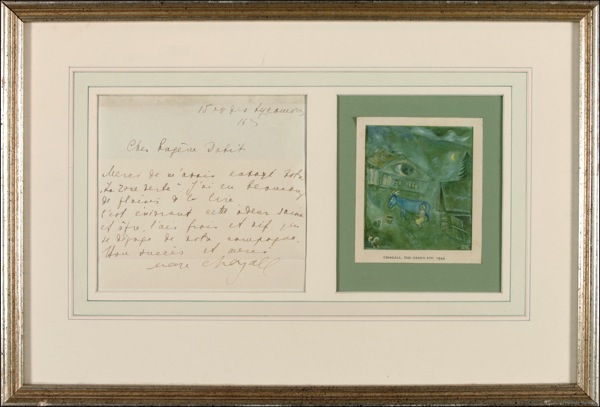 15
Cher Eugène Dabit
Merci de m'avoir envoyé votre
"La Zone Verte". J'ai eu beaucoup
de plaisir à la lire.
C'est enivrant cette odeur saine
et âpre, l'air frais et vif qui
se dégage de votre campagne.
Bon succès et merci
Marc Chagall
CHAGALL: THE GREEN EYE. 1944